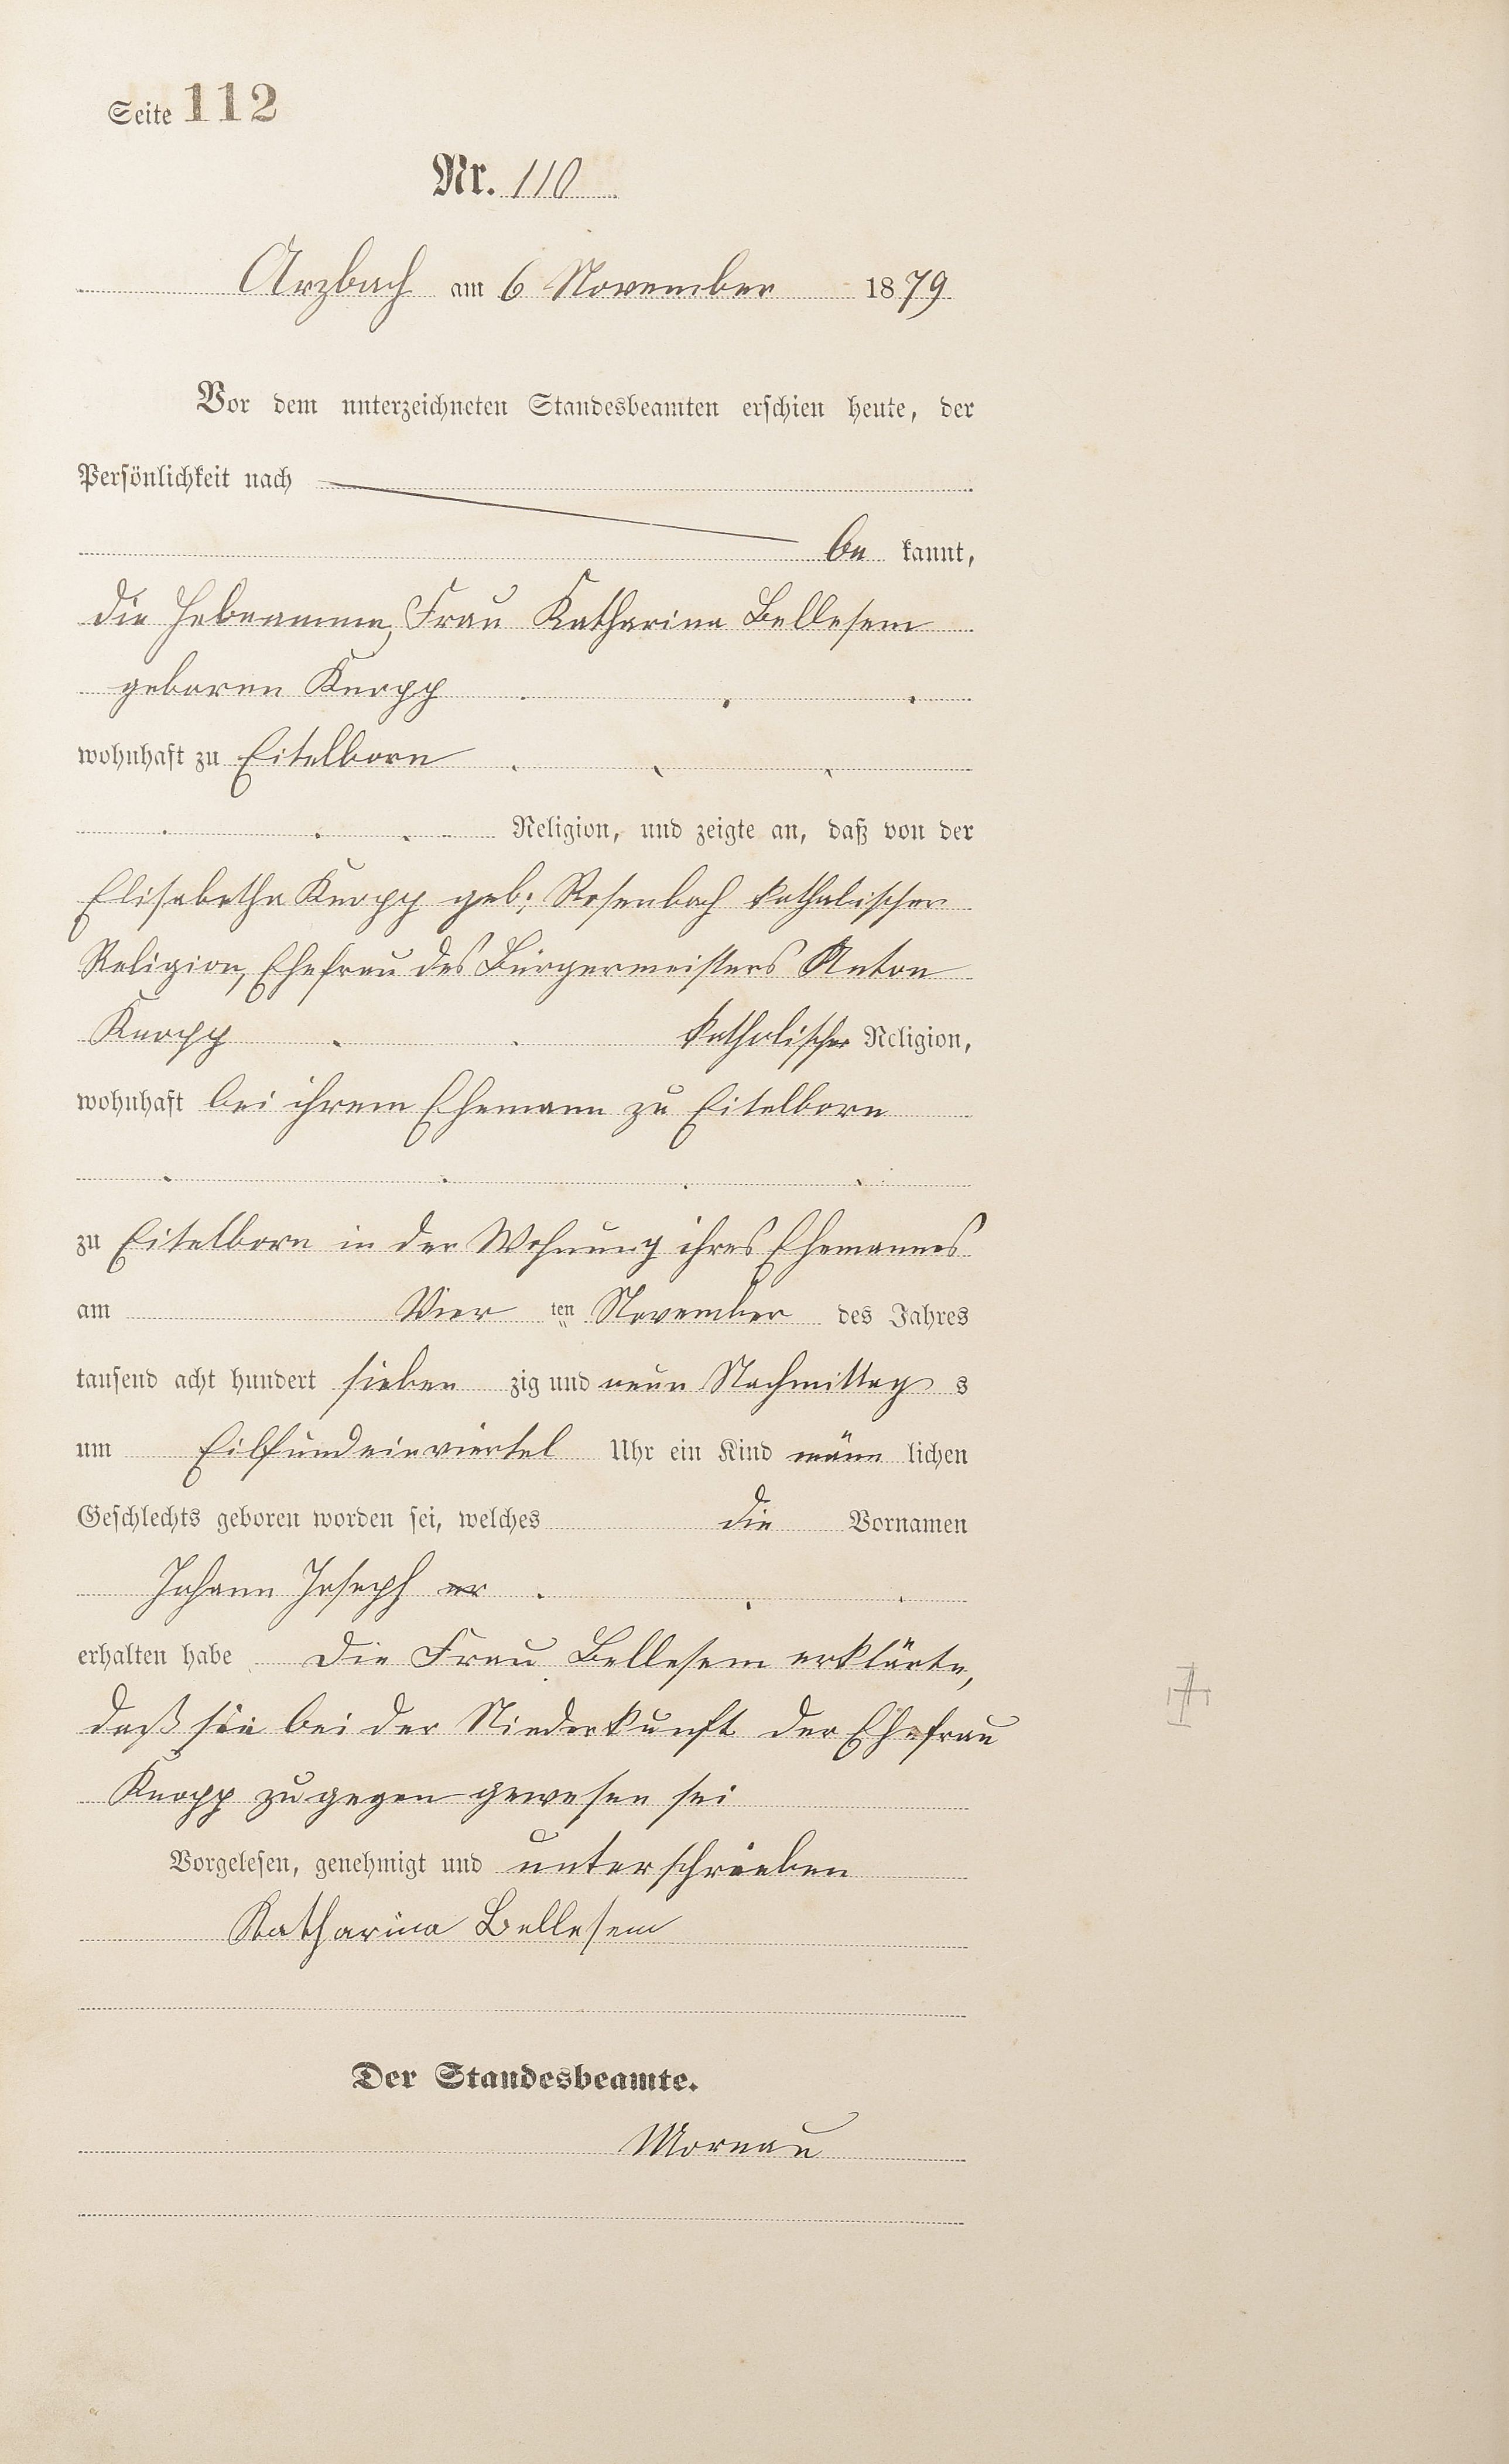 Seite 112
Nr. 110
Arzbach am 6 November 1879
Vor dem unterzeichneten Standesbeamten erschien heute, der
Persönlichkeit nach
be kannt,
die Hebeamme, Frau Katharina Bellesem
geboren Knopp
wohnhaft zu Eitelborn
Religion, und zeigte an, daß von der
Elisabetha Knopp geb: Rosenbach katholischer
Religion, Ehefrau des Bürgermeisters Anton
Knopp katholischer Religion,
wohnhaft bei ihrem Ehemann zu Eitelborn
zu Eitelborn in der Wohnung ihres Ehemannes
am Vier ten November des Jahres
tausend acht hundert sieben zig und neun Nachmittag s
um Eilfundeinviertel Uhr ein Kind männ lichen
Geschlechts geboren worden sei, welches die Vornamen
Johann Joseph er
erhalten habe Die Frau Bellesem erklärte,
daß sie bei der Niederkunft der Ehefrau
Knopp zugegen gewesen sei
Vorgelesen, genehmigt und unterschrieben
Katharina Bellesem
Der Standesbeamte.
Mornau